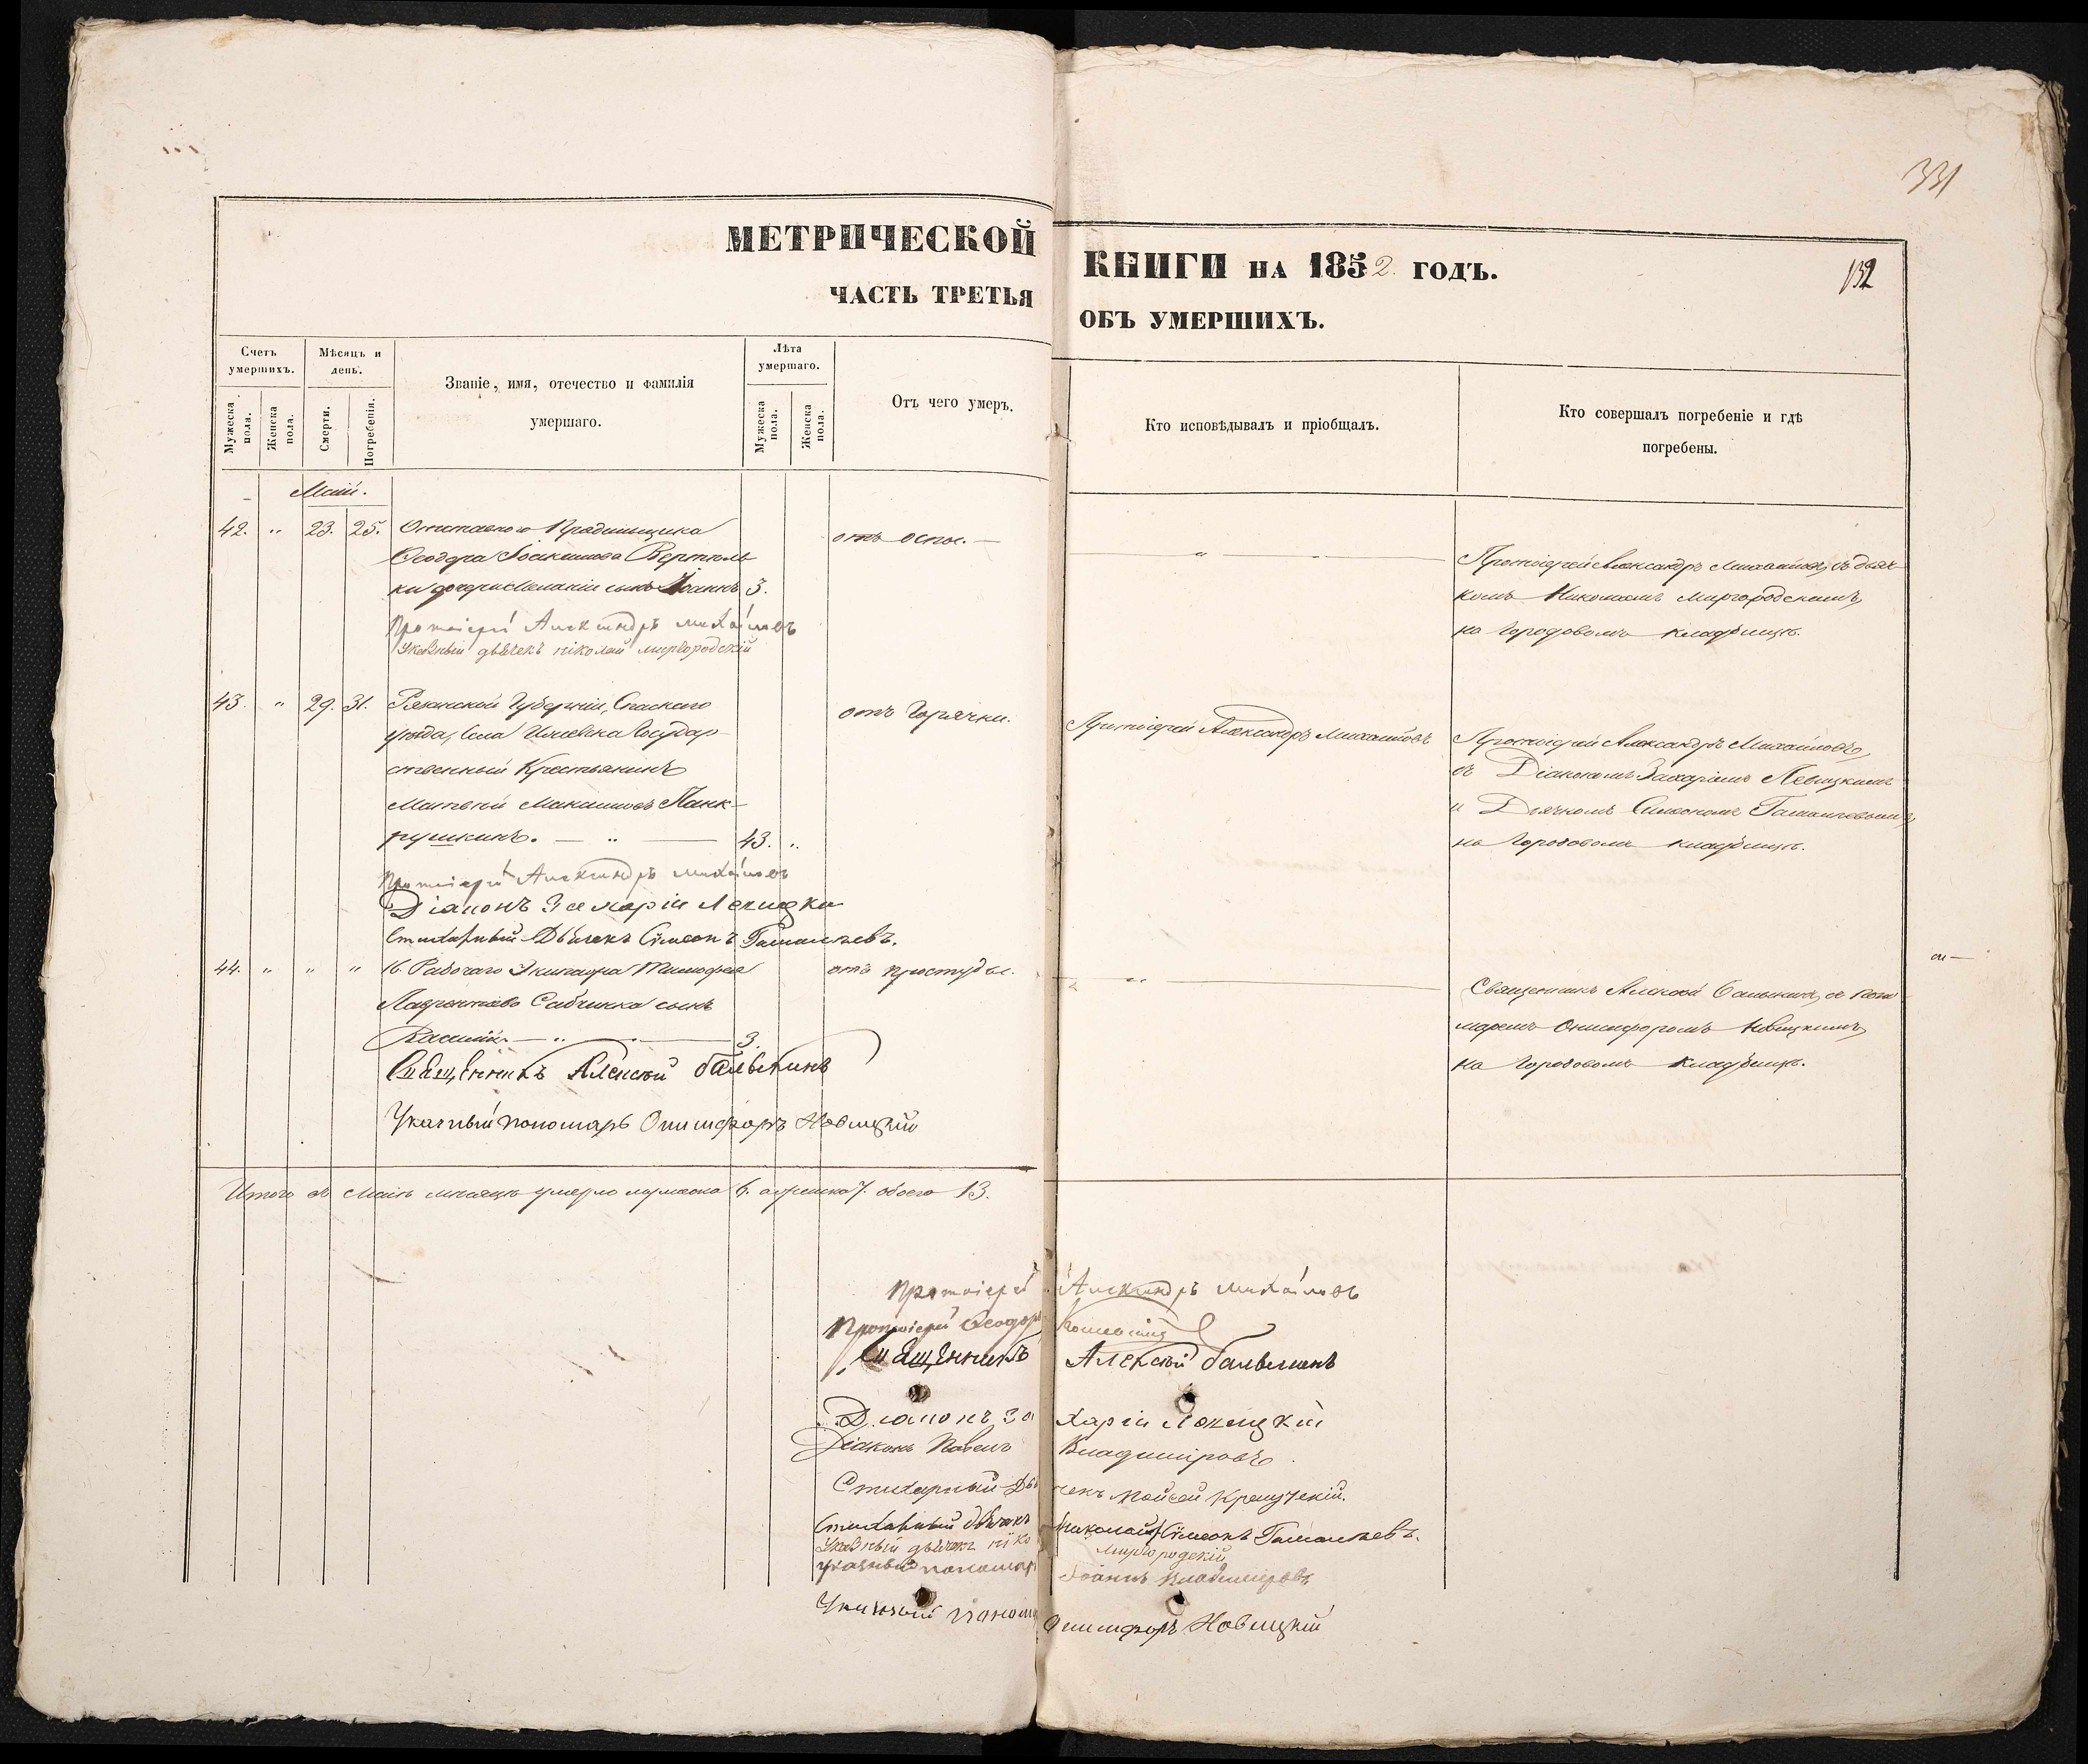 331
МЕТРИЧЕСКОЙ КНИГИ НА 1852 ГОДЪ.
132
ЧАСТЬ ТРЕТЬЯ ОБЪ УМЕРШИХЪ.
Счетъ умершихъ.
Мужеска пола.
Женска пола.
Мѣсяцъ и день.
Смерти.
Погребенія.
Званіе, имя, отечество и фамилія
умершаго.
Лѣта умершаго.
Мужеска пола.
Женска пола.
Отъ чего умеръ.
Кто исповѣдывалъ и пріобщалъ.
Кто совершалъ погребеніе и гдѣ
погребены.
Маій.
42. " 23. 25. Отставного Прядильщика
Ѳеодора Іоакимова
дочери Меланіи сынъ Іоаннъ 3.
отъ оспы.
Протоіерей Александръ Михайловъ, съ дьяч-
комъ Николаемъ Миргородскимъ,
на Городовомъ кладбищѣ.
Протоіерей Александръ Михайловъ
Указный дьячекъ Николай Миргородскій
43. " 29. 31. Рязанской Губерніи, Спаскаго
уѣзда, Села Государ-
ственный Крестьянинъ
Матвей Панк-
рушкинъ. — " — 43. "
отъ Горячки.
Протоіерей Александръ Михайловъ
Протоіерей Александръ Михайловъ,
съ Діакономъ Захаріемъ Левицкимъ
и Дьячкомъ Симеономъ Гамалѣевымъ,
на Городовомъ кладбищѣ.
Протоіерей Александръ Михайловъ
Діаконъ Захарій Левицкій
Стихарный Дьячекъ Сімеонъ Гамалѣевъ.
44. " " " 16. Рабочаго Экипажа Тимофея
Лаврентьева сынъ
Василій — " — 3.
отъ простуды.
Священникъ Алексій Балыкинъ, съ поно-
маремъ Онисифоромъ Новицкимъ,
на Городовомъ кладбищѣ.
Священникъ Алексій Балыкинъ
Указный пономарь Онисифоръ Новицкій
Итого въ Маіѣ мѣсяцѣ умерло мужеска 6. а женска 7. обоего 13.
Протоіерей Александръ Михайловъ
Протоіерей Ѳеодоръ
Священникъ Алексій Балыкинъ
Діаконъ Захарій Левицкій
Діаконъ Павелъ Владиміровъ
Стихарный Дьячекъ Мойсей
Стихарный дьячекъ Сімеонъ Гамалѣевъ.
Указный дьячекъ Николай Миргородскій
Указный пономарь Іоаннъ Владиміровъ
Указный пономарь Онисифоръ Новицкій